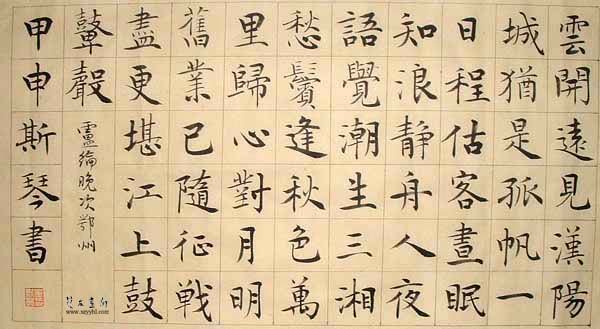 雲開遠見漢陽
城猶是孤帆一
日程估客晝眠
知浪靜舟人夜
語覺潮生三湘
愁鬢逢秋色萬
里歸心對月明
舊業已隨征戰
盡更堪江上鼓
鼙聲
盧綸晚次鄂州
甲申斯琴書